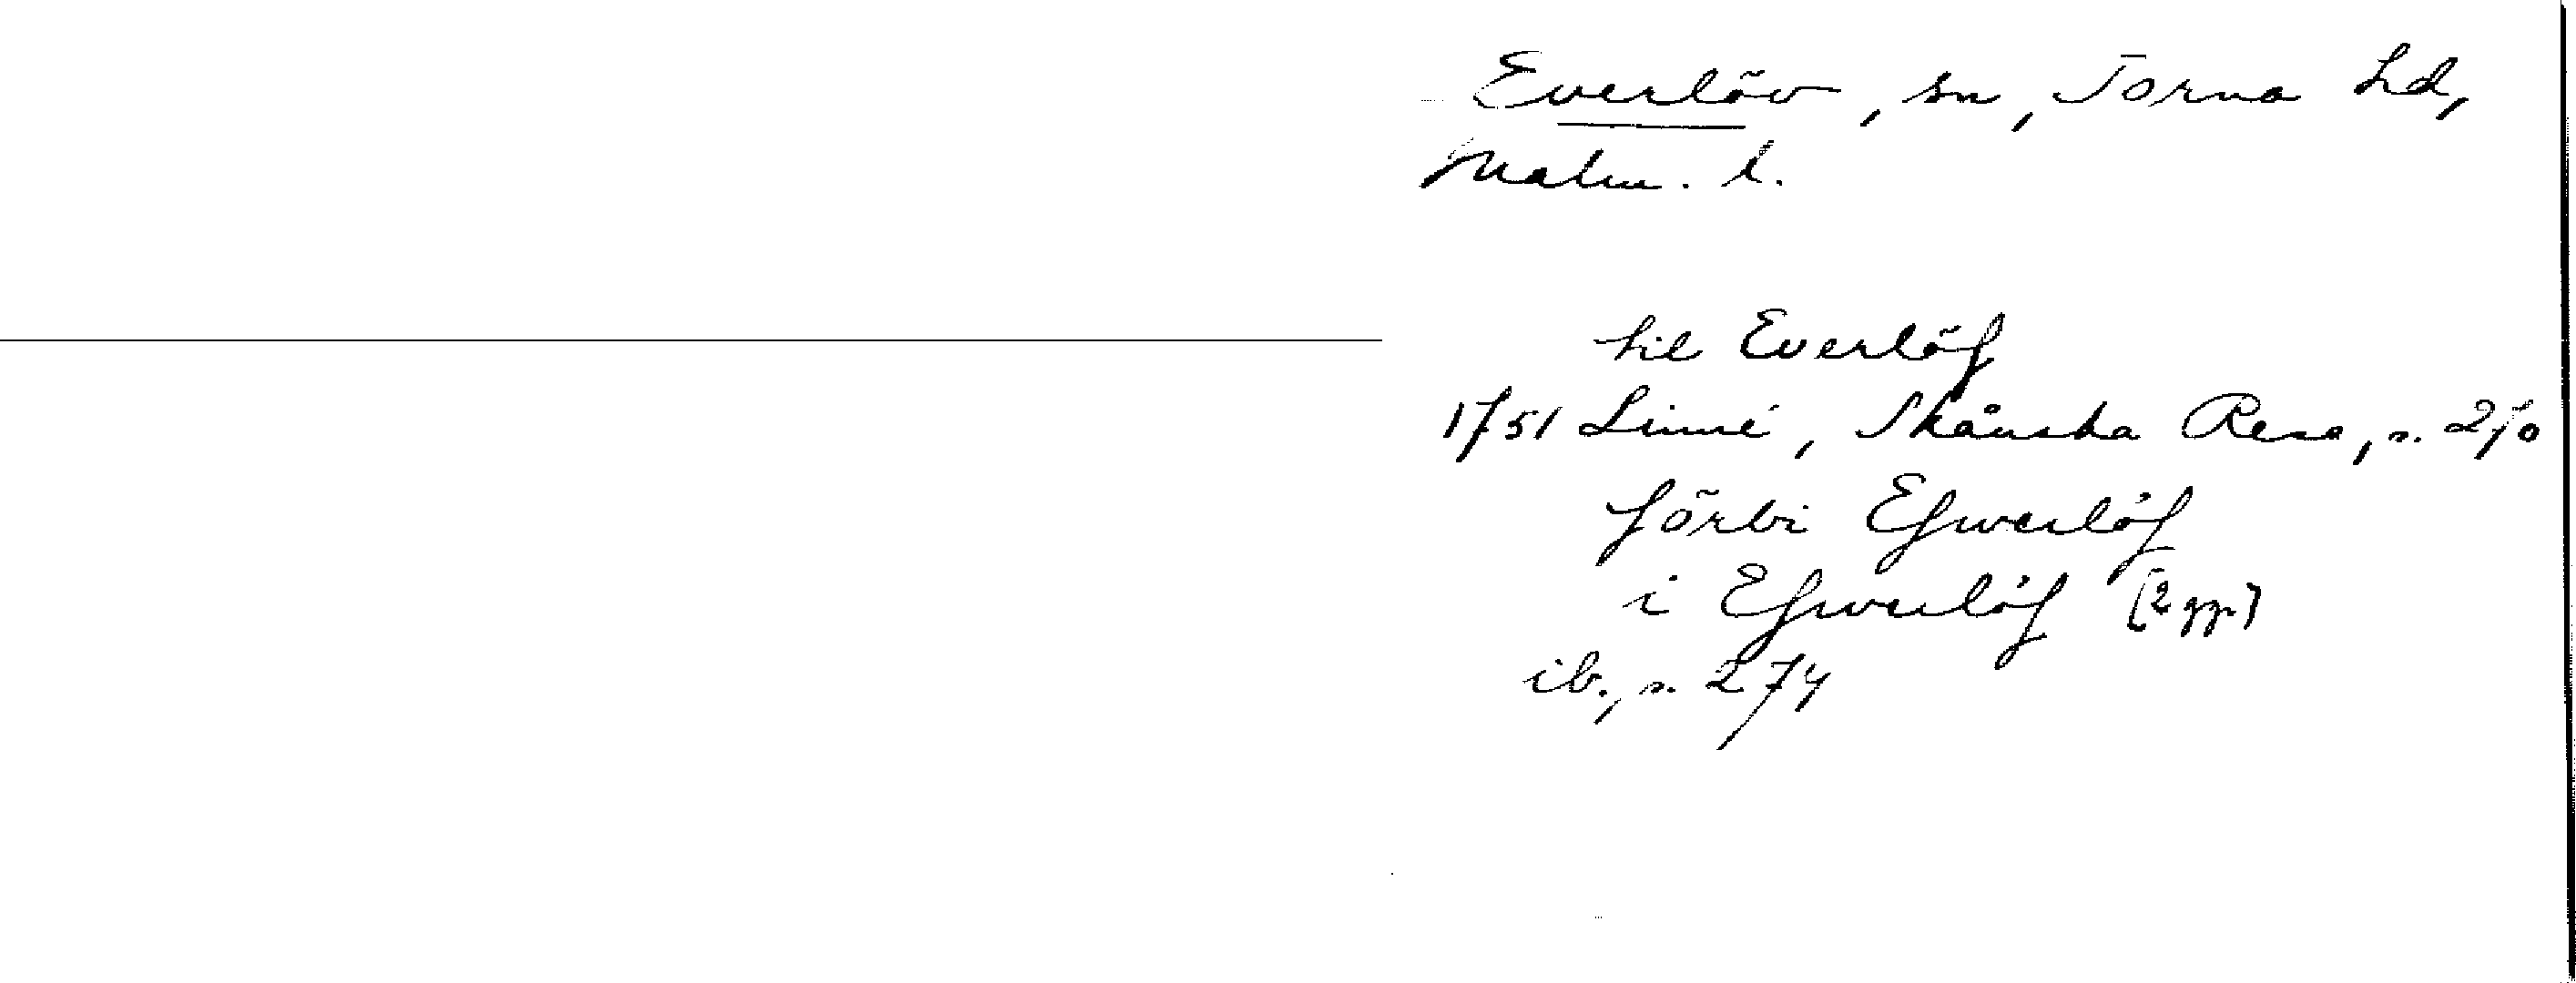 Everlöv, sn, Torna hd,
Malm. l.
til Everlöf
1751 Linné, Skånska Resa, s. 270
förbi Efwerlöf
i Efwerlöf (2 gg.)
ib., s. 274